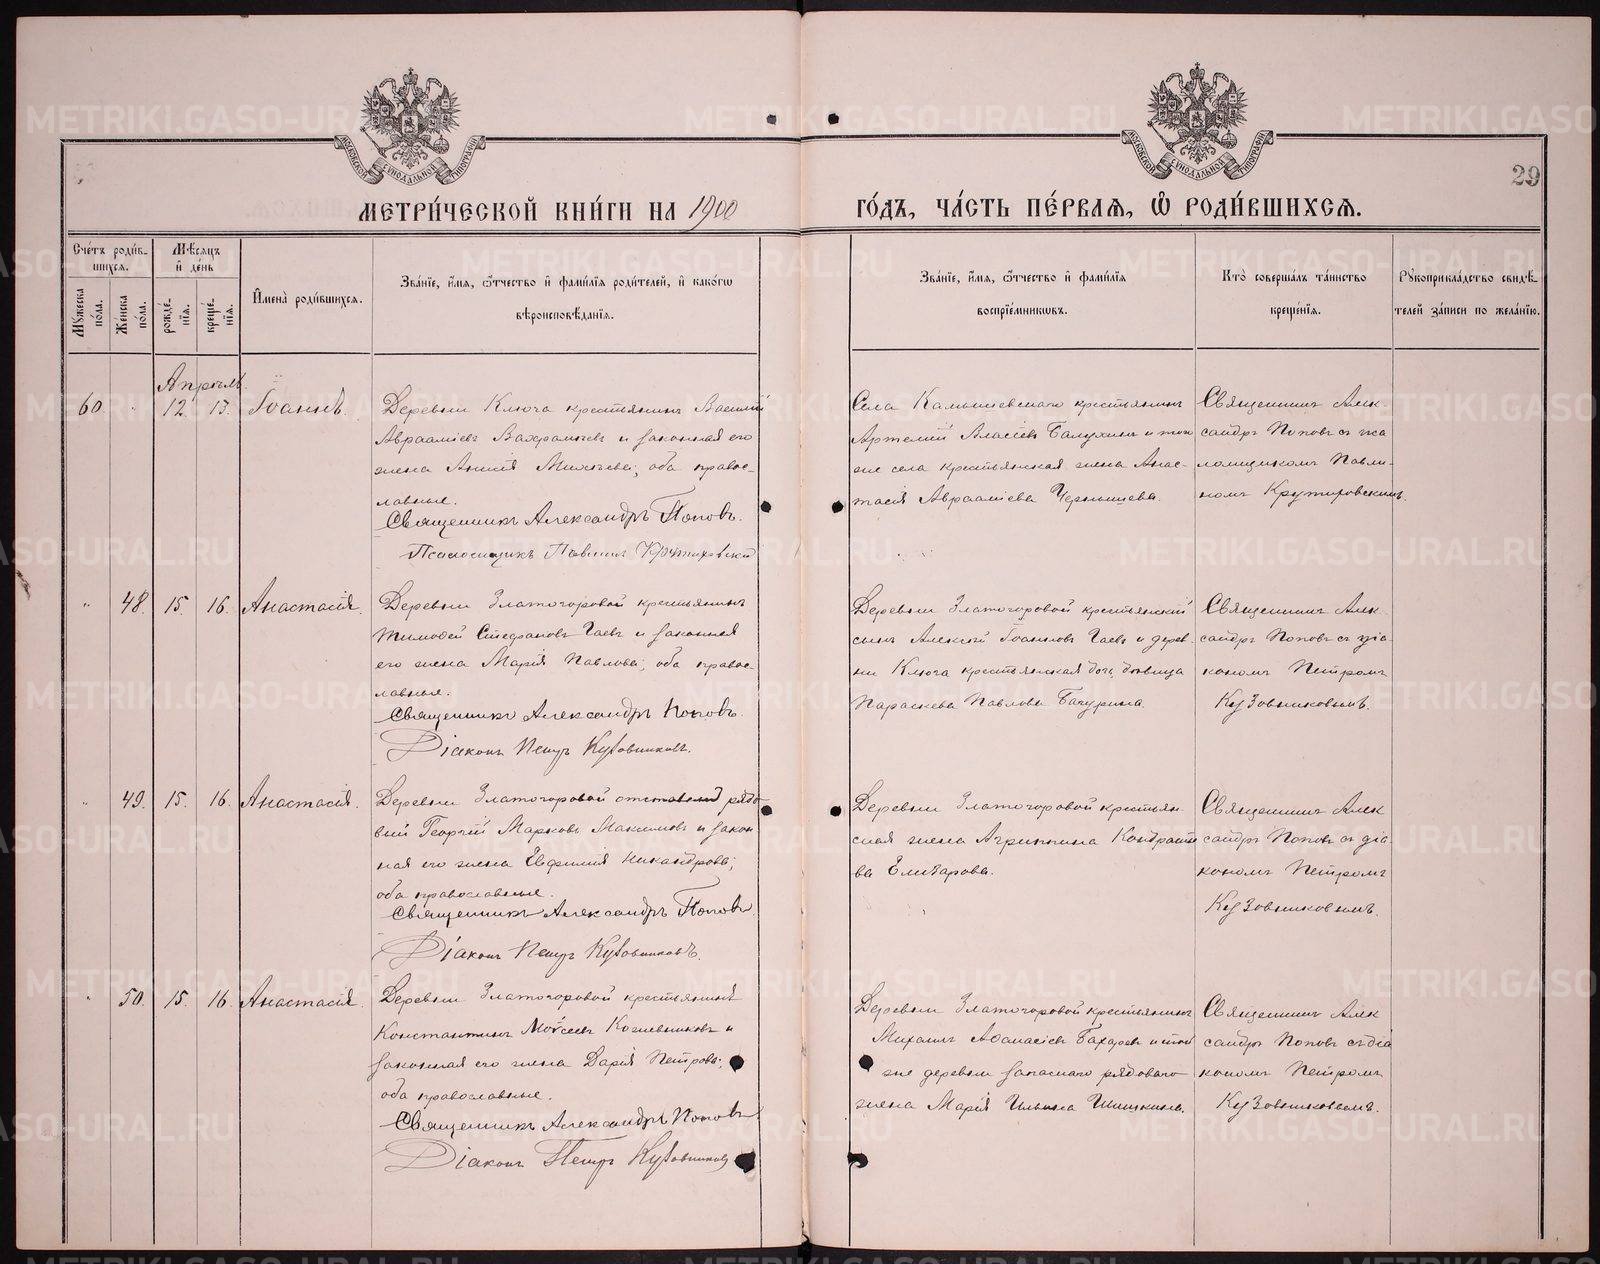 МЕТРИ́ЧЕСКОЙ КНИ́ГИ НА 1900
ГО́ДЪ, ЧА́СТЬ ПЕ́РВАѦ, Ѡ РОДИ́ВШИХСѦ.
29
МОСКОВСКОЙ СѴНОДАЛЬНОЙ ТИПОГРАФІИ
МОСКОВСКОЙ СѴНОДАЛЬНОЙ ТИПОГРАФІИ
Сче́тъ роди́вшихсѧ.
Мꙋ́жеска по́ла.
Же́нска по́ла.
Мѣ́сѧцъ и҆ де́нь
рожде́нїѧ.
креще́нїѧ.
И҆мена̀ роди́вшихсѧ.
Зва́нїе, и҆́мѧ, ѻ҆́тчество и҆ фами́лїѧ роди́телей, и҆ како́гѡ
вѣроисповѣ́данїѧ.
Зва́нїе, и҆́мѧ, ѻ҆́тчество и҆ фами́лїѧ
воспрїе́мникѡвъ.
Кто̀ соверша́лъ та́инство
креще́нїѧ.
Рꙋкоприкла́дство свидѣ́-
телей за́писи по жела́нїю.
Апрѣль.
60. 12. 13. Іоаннъ.
Деревни Ключа крестьянинъ Василій
Авраамієвъ Вахрамѣевъ и законная его
жена Аннія ; оба право-
лавные.
Священникъ Александръ Поповъ.
Псаломщикъ Павлинъ Крутиховскій
Села Камышевскаго крестьянинъ
Артемій Власіевъ Балухинъ и того
же села крестьянская жена Анас-
тасія Авраамиева Чернышева.
Священникъ Алек-
сандръ Поповъ съ пса
ломщикомъ Павли-
номъ Крутиховскимъ.
" 48. 15. 16. Анастасія.
Деревни Златогоровой крестьянинъ
Тимофей Стефановъ Гаевъ и законная
его жена Марія Павлова; оба правос-
лавные.
Священникъ Александръ Поповъ.
Діаконъ Петръ Кузовниковъ.
Деревни Златогоровой крестьянскій
сынъ Алексій Іоанновъ Гаевъ и дерев-
ни Ключа крестьянская дочь дѣвица
Параскева Павлова Бачурина.
Священникъ Алек-
сандръ Поповъ съ діа-
кономъ Петромъ
Кузовниковымъ.
" 49. 15. 16. Анастасія.
Деревни Златогоровой отставной рядо-
вый Георгій Марковъ Максимовъ и закон
ная его жена Евфимія Никандрова;
оба православные.
Священникъ Александръ Поповъ
Діаконъ Петръ Кузовниковъ.
Деревни Златогоровой крестьян-
ская жена Агриппина Кондратіе
ва Елизарова.
Священникъ Алек
сандръ Поповъ съ діа-
кономъ Петромъ
Кузовниковымъ.
" 50. 15. 16. Анастасія.
Деревни Златогоровой крестьянинъ
Константинъ Моѵсеевъ Кожевниковъ и
законная его жена Дарія Петрова;
оба православные.
Священникъ Александръ Поповъ
Діаконъ Петръ Кузовниковъ
Деревни Златогоровой крестьянинъ
Михаилъ Аѳанасіевъ Бахаревъ и той
же деревни запаснаго рядоваго
жена Марія Ильина Шишкина.
Священникъ Алек
сандръ Поповъ съ діа
кономъ Петромъ
Кузовниковымъ.
METRIKI.GASO-URAL.RU